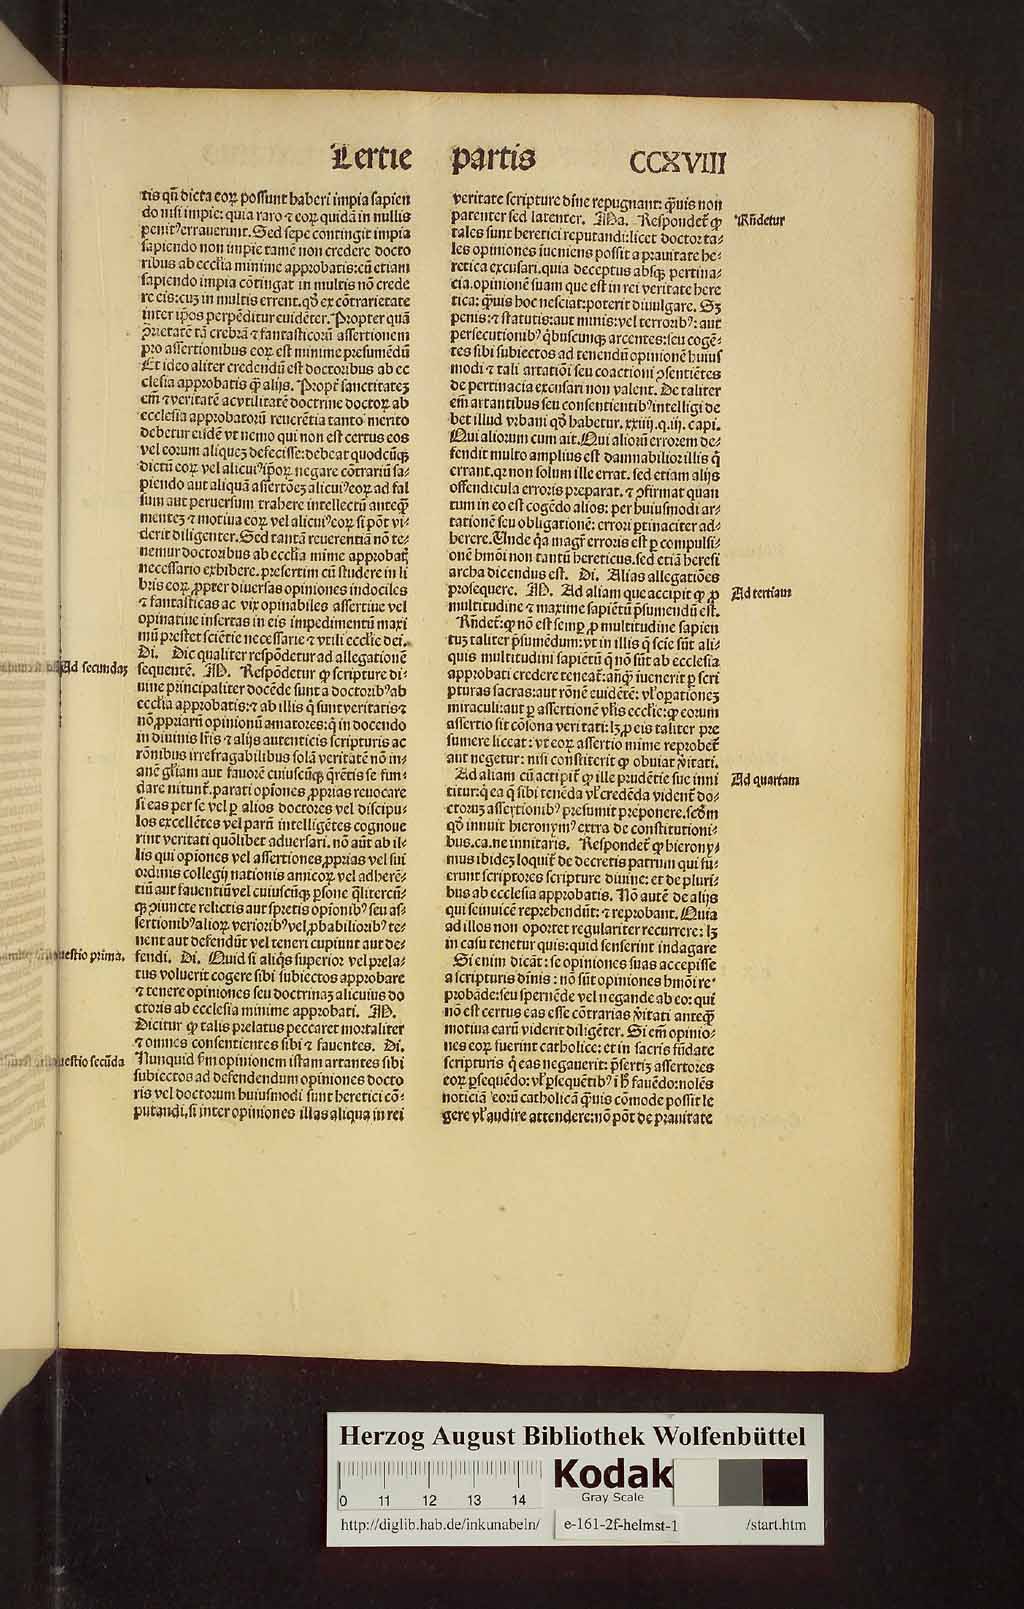 Tertie partis CCXVIII
tis qñ dicta eoꝝ possunt haberi impia sapien
do nisi impie: quia raro ⁊ eoꝝ quidã in nullis
penitꝰ errauerunt. Sed sepe contingit impia
sapiendo non impie tamẽ non credere docto
ribus ab ecclĩa minime approbatis: cũ etiam
sapiendo impia cõtingat in multis nõ crede
re eis: cuȝ in multis errent. qđ ex cõtrarietate
inter ipõs perpẽditur euidẽter. Propter quã
ꝯrietatẽ tã crebrã ⁊ fantasticorũ assertionem
pro assertionibus eoꝝ est minime presumẽdũ
Et ideo aliter credendũ est doctoribus ab ec
clesia approbatis ꝙ̃ alijs. Propẽ sanctitateȝ
em̃ ⁊ veritatẽ ac vtilitatẽ doctrine doctoꝝ ab
ecclesia approbatorũ reuerẽtia tanto merito
debetur eisdẽ vt nemo qui non est certus eos
vel eorum aliqueȝ defecisse: debeat quodcũꝙ
dictũ eoꝝ vel alicuiꝰ ipõꝝ negare cõtrariũ sa⸗
piendo aut aliquã assertõeȝ alicuiꝰ eoꝝ ad fal
sum aut peruersum trahere intellectũ anteꝙ̃
menteȝ ⁊ motiua eoꝝ vel alicuiꝰ eoꝝ si põt vi⸗
derit diligenter. Sed tantã reuerentiã nõ te⸗
nemur doctoribus ab ecclĩa mĩme approbatꝭ
necessario exhibere. presertim cũ studere in li
bris eoꝝ ꝓpter diuersas opiniones indociles
⁊ fantasticas ac vix opinabiles assertiue vel
opinatiue insertas in eis impedimentũ maxi
mũ prestet sciẽtie necessarie ⁊ vtili ecclĩe dei.
Di. Dic qualiter respõdetur ad allegationẽ
sequentẽ. M. Respõdetur ꝙ scripture di⸗
uine principaliter docẽde sunt a doctoribꝰ ab
ecclĩa approbatis: ⁊ ab illis q̃ sunt veritatis ⁊
nõ ꝓpriarũ opinionũ amatores: q̃ in docendo
in diuinis lr̃is ⁊ alijs autenticis scripturis ac
rõnibus irrefragabilibus solã veritatẽ nõ in⸗
anẽ gl̃iam aut fauorẽ cuiuscũꝙ q̃rẽtis se fun⸗
dare nitunt̃. parati opĩones ꝓprias reuocare
si eas per se vel ꝑ alios doctores vel discipu⸗
los excellẽtes vel parũ intelligẽtes cognoue
rint veritati quõlibet aduersari. nõ aũt ab il⸗
lis qui opiones vel assertiones ꝓprias vel sui
ordinis collegij nationis amicoꝝ vel adherẽ⸗
tiũ aut fauentiũ vel cuiuscũꝙ ꝑsone q̃litercũ⸗
ꝙ ꝯiuncte relictis aut spretis opĩonibꝰ seu as⸗
sertionibꝰ alioꝝ verioribꝰ vel ꝓbabilioribꝰ te⸗
nent aut defendũt vel teneri cupiunt aut de⸗
fendi. Di. Quid si aliq̃s superior vel prela⸗
tus voluerit cogere sibi subiectos approbare
⁊ tenere opiniones seu doctrinaȝ alicuius do
ctoris ab ecclesia minime approbati. M.
Dicitur ꝙ talis prelatus peccaret mortaliter
⁊ omnes consentientes sibi ⁊ fauentes. Di.
Nunquid ẜm opinionem istam artantes sibi
subiectos ad defendendum opiniones docto
ris vel doctorum huiusmodi sunt heretici cõ⸗
putandi, si inter opiniones illas aliqua in rei
Ad secundaȝ
questio prima.
questio secũda
veritate scripture dĩne repugnant: q̃uis non
patenter sed latenter. Ma. Respondet̃ ꝙ
tales sunt heretici reputandi: licet doctor ta⸗
les opiniones iueniens possit a prauitate he⸗
retica excusari. quia deceptus absꝙ pertina⸗
cia. opinionẽ suam que est in rei veritate here
tica: q̃uis hoc nesciat: poterit diuulgare. Sȝ
penis: ⁊ statutis: aut minis: vel terroribꝰ: aut
persecutionibꝰ q̃buscunꝙ arcentes: seu cogẽ⸗
tes sibi subiectos ad tenendũ opinionẽ huius
modi ⁊ tali artatiõi seu coactioni ꝯsentiẽtes
de pertinacia excusari non valent. De taliter
em̃ artantibus seu consentientibꝰ intelligi de
bet illud vrbani qđ habetur. xxiiij. q. iij. capi.
Qui aliorum cum ait. Qui aliorũ errorem de⸗
fendit multo amplius est damnabilior illis q̃
errant. qꝛ non solum ille errat. sed etiam alijs
offendicula erroris preparat. ⁊ ꝯfirmat quan
tum in eo est cogẽdo alios: per huiusmodi ar⸗
tationẽ seu obligationẽ: errori ꝑtinaciter ad⸗
herere. Unde q̃a magr̃ erroris est ꝑ compulsi⸗
onẽ hmõi non tantũ hereticus. sed etiã heresi
archa dicendus est. Di. Alias allegatiões
prosequere. M. Ad aliam que accipit ꝙ ꝓ
multitudine ⁊ maxime sapiẽtũ p̃sumendũ est.
Rñdet̃: ꝙ nõ est semꝑ ꝓ multitudine sapien
tuȝ taliter p̃sumẽdum: vt in illis q̃ scĩe sũt ali⸗
quis multitudini sapiẽtũ q̃ nõ sũt ab ecclesia
approbati credere teneat̃: añꝙ̃ iuenerit ꝑ scri
pturas sacras: aut rõnẽ euidẽtẽ: vl̃ oꝑationeȝ
miraculi: aut ꝑ assertionẽ vl̃is ecclĩe: ꝙ eorum
assertio sit cõsona veritati: lȝ ꝓ eis taliter pre
sumere liceat: vt eoꝝ assertio mĩme reprobet̃
aut negetur: nisi constiterit ꝙ obuiat v̾itati.
Ad aliam cũ accipit̃ ꝙ ille prudẽtie sue inni
titur: q̃ ea q̃ sibi tenẽda vl̃ credẽda vident̃ do⸗
ctoruȝ assertionibꝰ presumit preponere. scđm
qđ innuit hieronymꝰ extra de constitutioni⸗
bus. ca. ne innitaris. Respondet̃ ꝙ hierony⸗
mus ibideȝ loquit̃ de decretis patrum qui fu⸗
erunt scriptores scripture diuine: et de pluri⸗
bus ab ecclesia approbatis. Nõ autẽ de alijs
qui seinuicẽ reprehendũt: ⁊ reprobant. Quia
ad illos non oportet regulariter recurrere: lȝ
in casu tenetur quis: quid senserint indagare
Si enim dicãt: se opiniones suas accepisse
a scripturis diĩnis: nõ sũt opiniones hmõi re⸗
probãde: seu spernẽde vel negande ab eo: qui
nõ est certus eas esse cõtrarias v̾itati anteꝙ̃
motiua earũ viderit diligẽter. Si em̃ opinio⸗
nes eoꝝ fuerint catholice: et in sacris fũdate
scripturis q̃ eas negauerit: p̃sertiȝ assertores
eoꝝ ꝑsequẽdo: vl̃ ꝑsequẽtibꝰ ĩ h̾ fauẽdo: nolẽs
noticiã eorũ catholicã q̃uis cõmode possit le
gere vl̃ audire attendere: nõ põt de prauitate
Rñdetur
Ad tertiam
Ad quartam
Herzog August Bibliothek Wolfenbüttel
0 11 12 13 14
Kodak
Gray Scale
http://diglib.hab.de/inkunabeln/ e-161-2f-helmst-1 /start.htm